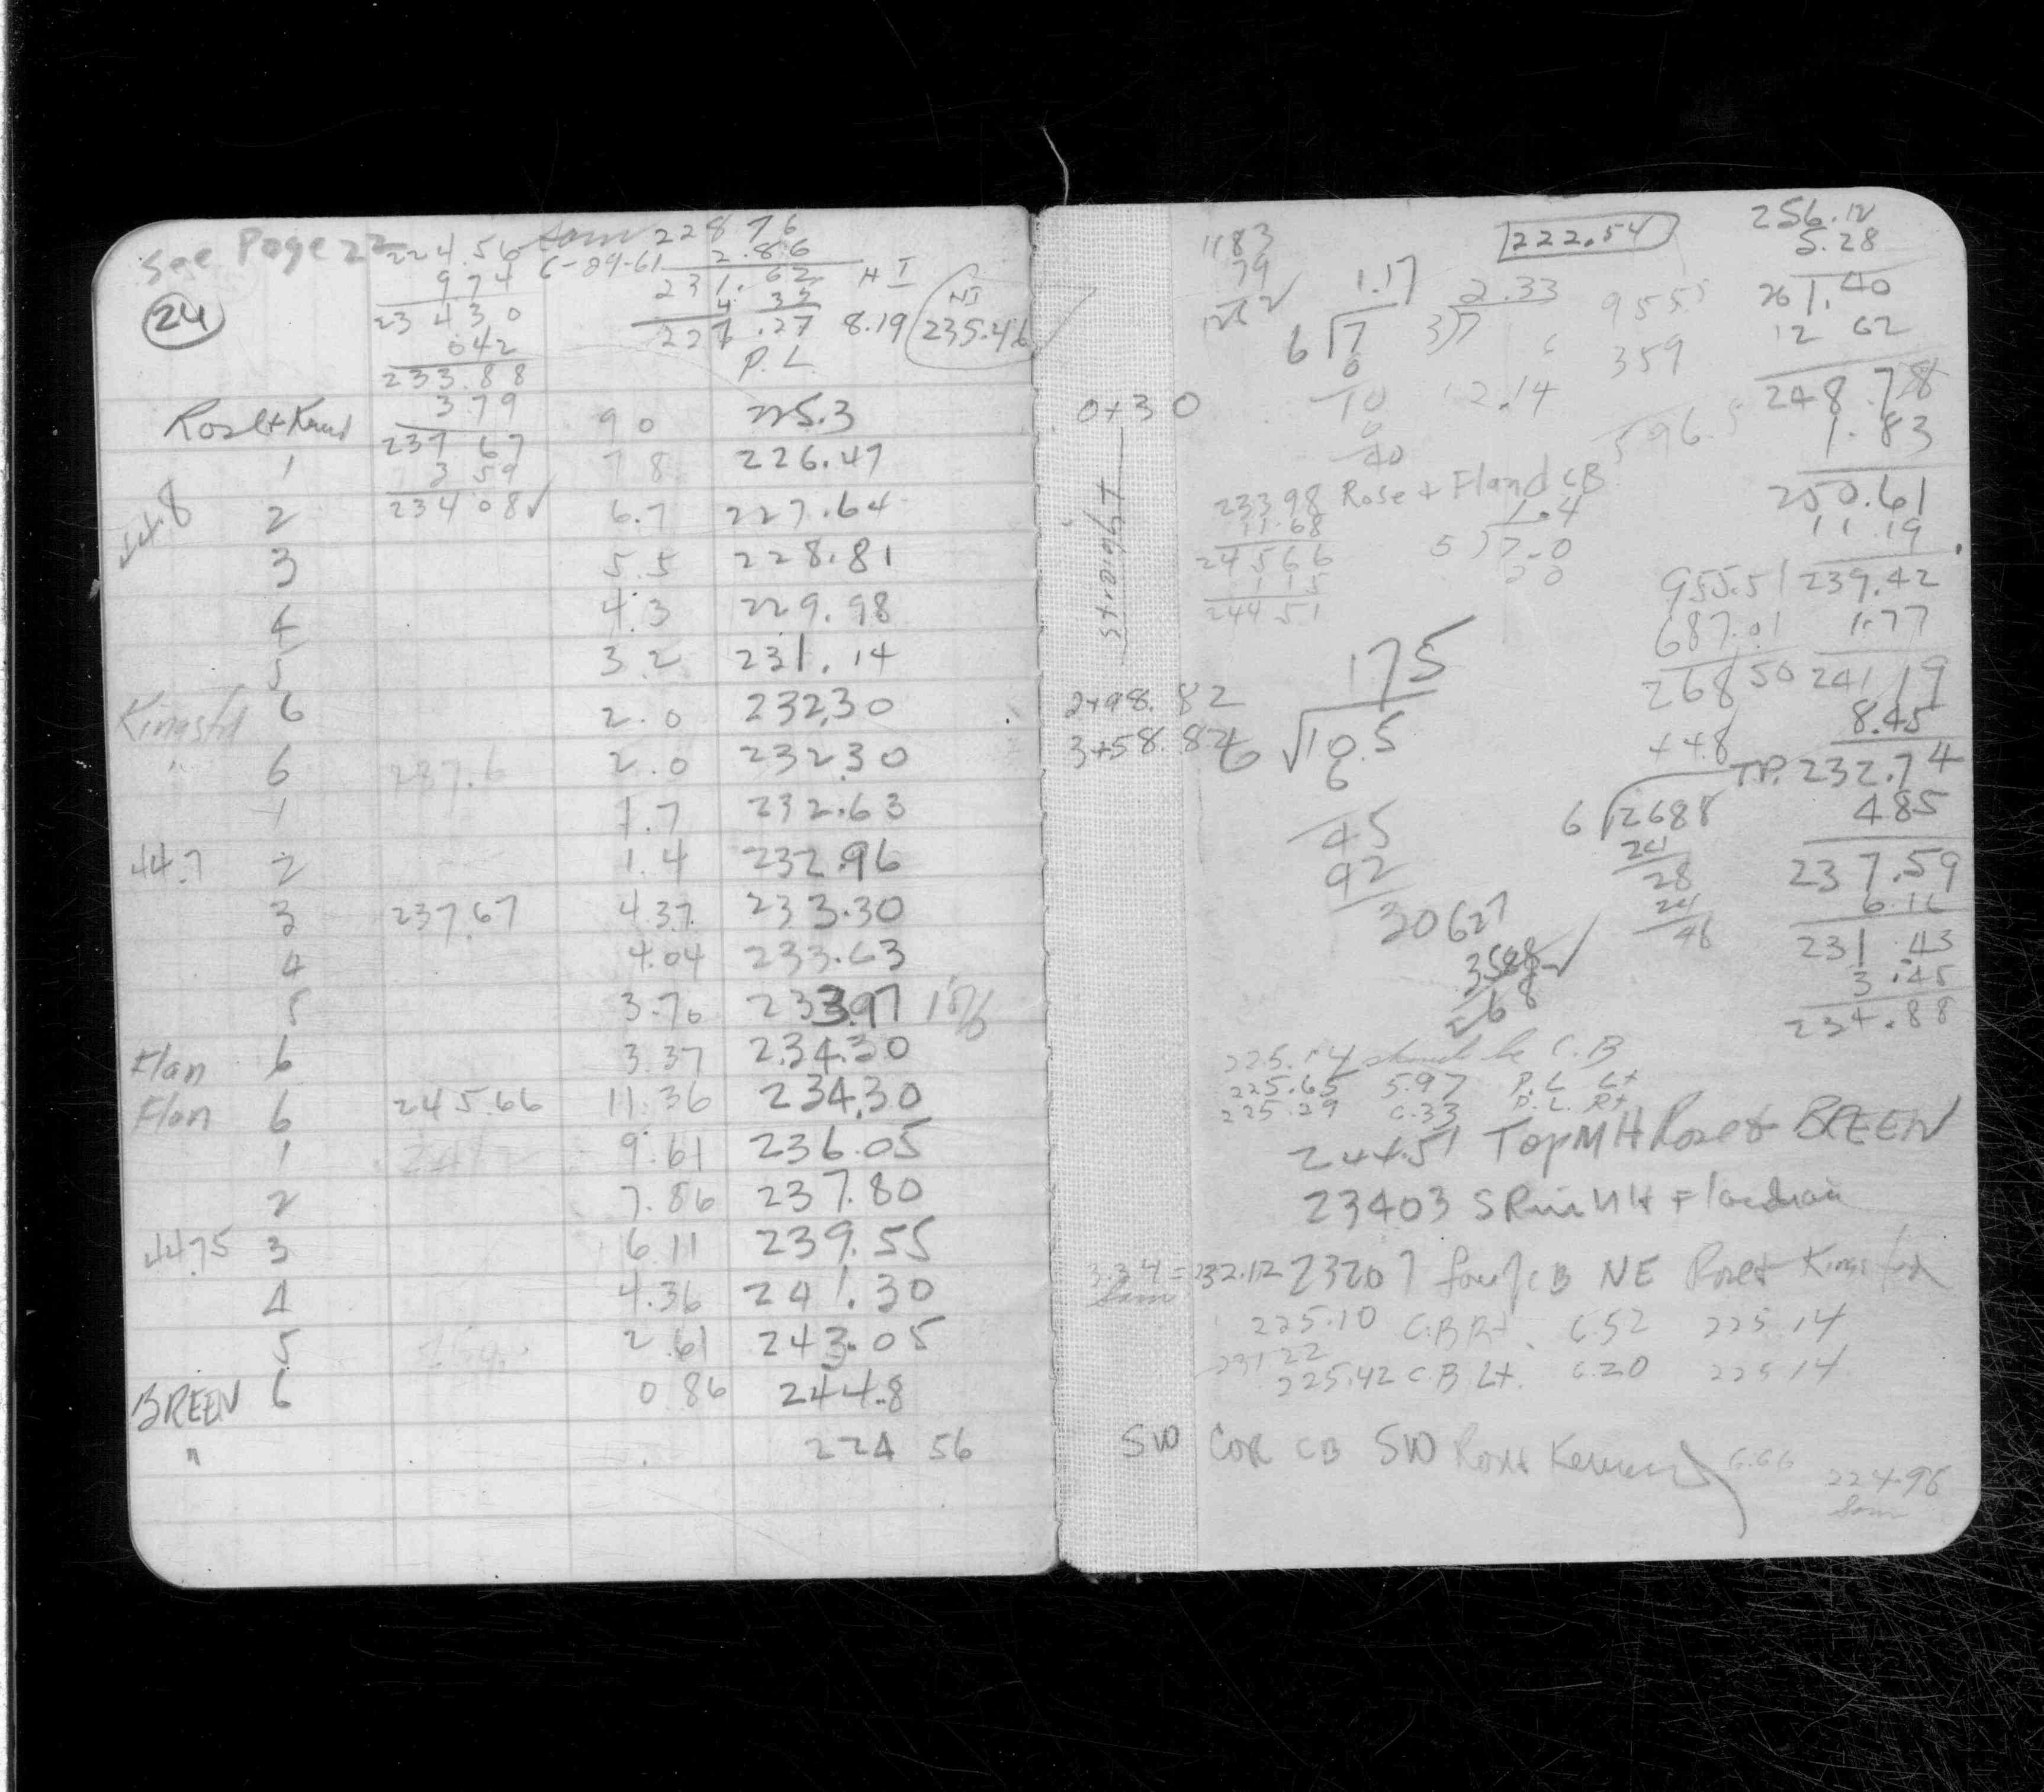 See Page 22
24
224.56
974
23430
042
233.88
379
237 67
3 59
23408✓
6-29-61
228 76
2.86
231.62 H I
4 35
227.27 8.19
HI
235.46
P.L.
Rose + Kend 90 225.3
1 78 226.47
44.8 2 6.7 227.64
3 5.5 228.81
4 4.3 229.98
5 3.2 231.14
Kingsfd 6 2.0 232.30
" 6 237.6 2.0 232.30
1 1.7 232.63
44.7 2 1.4 232.96
3 237.67 4.37 233.30
4 4.04 233.63
5 3.70 233.97
Flan 6 3.37 234.30
Flan 6 245.66 11.36 234.30
1 9.61 236.05
2 7.86 237.80
44.75 3 6.11 239.55
4 4.36 241.30
5 2.61 243.05
BREEN 6 0.86 244.8
" 224 56
0+30
straight
2+98.82
3+58.82
1183
79
1262✓
1.17
6 7
6
10
6
40
222.54
2.33
3)7
12.14
9555
359
596.5
256.12
5.28
261.40
12 62
248.78
1.83
250.61
11.19
239.42
1.77
241.19
8.45
T.P. 232.74
485
237.59
6.16
231.43
3.45
234.88
23398 Rose + Fland CB
11.68
24566
115
24451
1.4
5)7.0
20
955.51
687.01
268 50
448
6 2688
24
28
24
48
175
6 10.5
6
45
42
30627
3588✓
268
225.14 should be C.B
225.65 5.97 P.L Lt
225.29 6.33 P.L. Rt
244.51 Top MH Rose + BREEN
23403 S Rim MH Flandrau
3.34 = 232.12 23207 CB NE Rose + Kingsford
225.10 C.B Rt. 6.52 225.14
231 22
225.42 C.B Lt. 6.20 225 14
SW COR CB SW Rose + Kennard 6.66 224.96